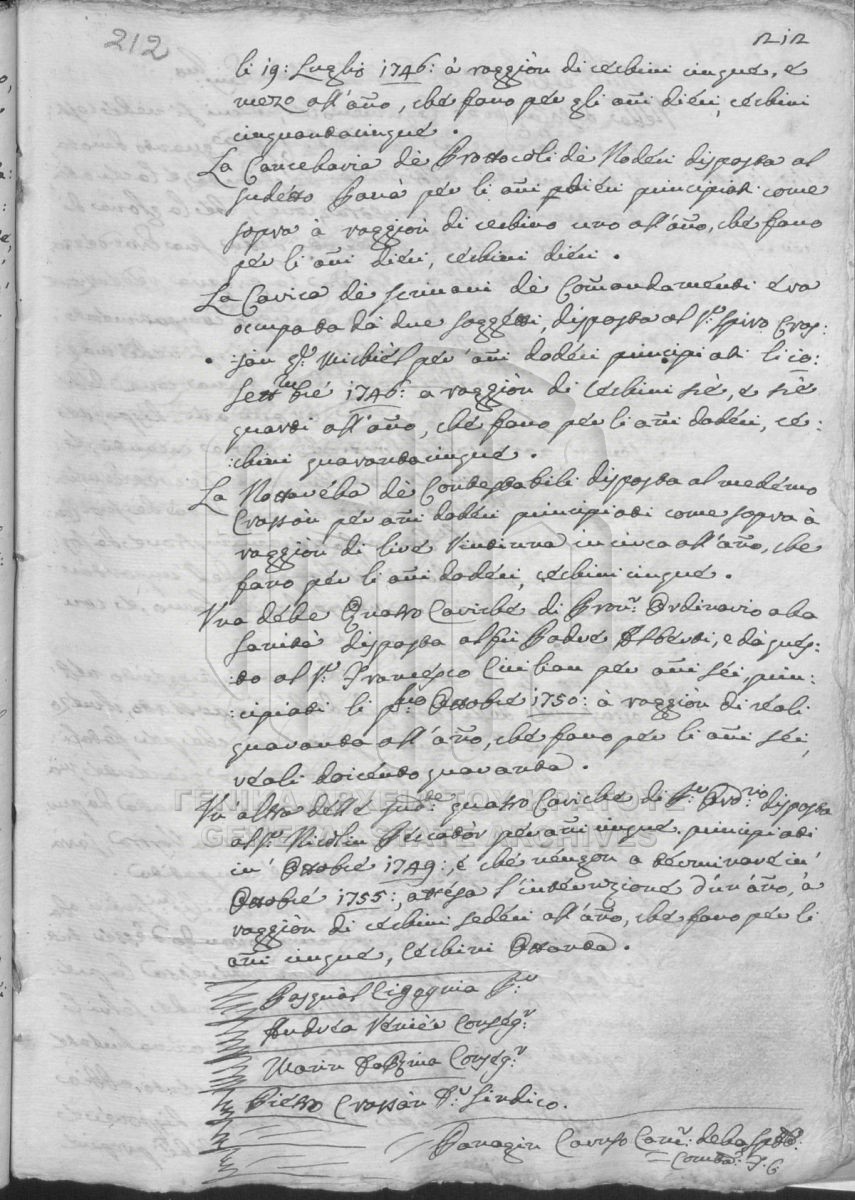 212
212
li 19: Luglio 1746: à raggiòn di cechini cinque, e
mezo all'año, che fano per gli añi dieci, cechini
cinquantacinque.
La Cancelaria dè Prottocoli dè Noderi disposta al
sudetto Panà per li añi dieci principiati come
sopra à raggiòn di cechino uno all'año, che fano
per li añi dieci, cechini dieci.
La Carica dè scrivani dè Comandamenti era
occupada dà due soggetti, disposta al Sr. Spiro Cras-
:sàn qr. Michièl per añi dodeci principiati li 10:
Settmbre 1746: a raggiòn di Cechini trè, e trè
quarti all'año, che fano per li añi dodeci, ce:
:chini quarantacinque.
La Nottarella dè Contestabili disposta al medemo
Crassàn per añi dodeci principiati come sopra à
raggiòn di lire Vintiuna in circa all'año, che
fano per li añi dodeci, cechini cinque.
Una delle Quatro Cariche di Provr. Ordinario alla
Sanità disposta al fù Padre Alberti, e dà ques-
:to al Sr. Francesco Cicilian per añi sei, prin-
:cipiati li pmo Ottobre 1750: à raggiòn di reali
quaranta all'año, che fano per li añi sei,
reali doicento quaranta.
Un altra delle sude quatro Cariche di Pr. Ordrio disposta
al Sr. Nicolin Pescadòr per añi cinque, principiati
in' Ottobre 1749:, e che vengon a terminare in'
Ottobre 1755:, attesa l'interuzione d'un'año, à
raggiòn di cechini sedeci all'año, che fano per li
añi cinque, Cechini Ottanta.
Pasquàl Cigogna Sr.
Andrea Venièr Consegr.
Marin Consegr.
Pietro Crassàn Sr. Sindico.
Panagin Caruso Canr. della
ΓΕΝΙΚΑ ΑΡΧΕΙΑ ΤΟΥ ΚΡΑΤΟΥΣ
GENERAL STATE ARCHIVES